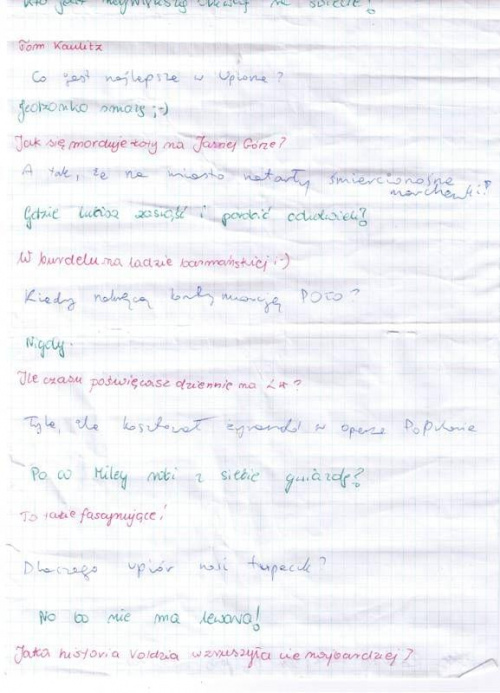 Kto jest największą na świecie?
Tom Kaulitz
Co jest najlepsze w Upiorze?
smażą ;-)
Jak się morduje na Jasnej Górze?
A tak, że na miasto natarły śmiercionośne
marchewki!!
Gdzie lubisz zasiąść i cokolwiek?
W burdelu na ladzie barmańskiej :-)
Kiedy nakręcą POTO?
Nigdy.
Ile czasu poświęcasz dziennie na L*?
Tyle, ile kosztował żyrandol w operze Populaire
Po co Miley robi z siebie gwiazdę?
To takie fascynujące!
Dlaczego upiór nosi tupecik?
No bo nie ma !
Jaka historia Voldzia wzruszyła cię najbardziej?